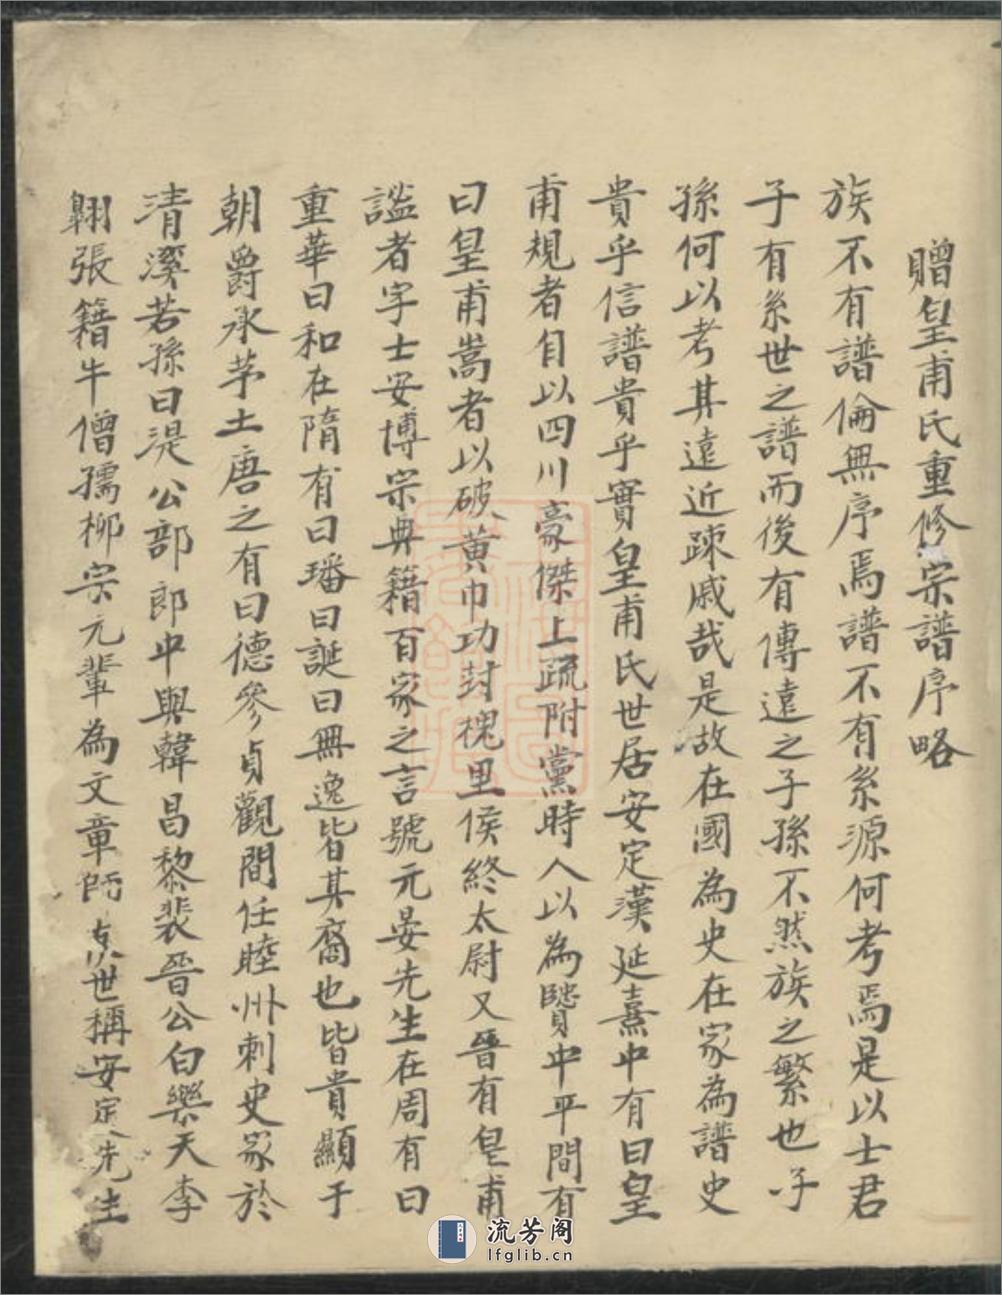 贈皇甫氏重修宗譜序略
族不有譜倫無序焉譜不有系源何考焉是以士君
子有系世之譜而後有傳遠之子孫不然族之繁也子
孫何以考其遠近疎戚哉是故在國為史在家為譜史
貴乎信譜貴乎實皇甫氏世居安定漢延熹中有曰皇
甫規者自以四川豪傑上疏附黨時人以為賢中平間有
曰皇甫嵩者以破黃巾功封槐里侯終太尉又晉有皇甫
謐者字士安博宗典籍百家之言號元晏先生在周有曰
重華曰和在隋有曰璠曰誕曰無逸皆其裔也皆貴顯于
朝爵承茅土唐之有曰德參貞觀間任睦州刺史家於
清溪若孫曰湜公部郎中與韓昌黎裴晉公白樂天李
翱張籍牛僧孺柳宗元輩為文章師友世稱安定先生
流芳阁
lfglib.cn